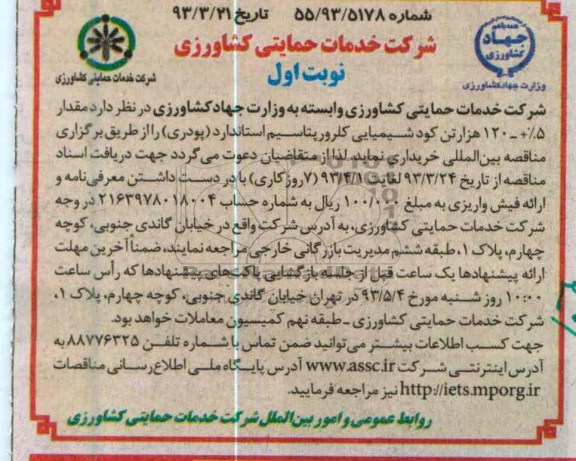 شماره ۵۵/۹۳/۵۱۷۸ تاریخ ۹۳/۳/۲۱
شرکت خدمات حمایتی کشاورزی
نوبت اول
جهاد
کشاورزی
وزارت جهاد کشاورزی
شرکت خدمات حمایتی کشاورزی
شرکت خدمات حمایتی کشاورزی وابسته به وزارت جهاد کشاورزی در نظر دارد مقدار
۵٪+_ ۱۲۰ هزار تن کود شیمیایی کلرور پتاسیم استاندارد (پودری) را از طریق برگزاری
مناقصه بین‌المللی خریداری نماید. لذا از متقاضیان دعوت می‌گردد جهت دریافت اسناد
مناقصه از تاریخ ۹۳/۳/۲۴ لغایت ۹۳/۴/۱ (۷ روز کاری) با در دست داشتن معرفی‌نامه و
ارائه فیش واریزی به مبلغ ۱۰۰/۰۰۰ ریال به شماره حساب ۲۱۶۳۹۷۸۰۱۸۰۰۴ در وجه
شرکت خدمات حمایتی کشاورزی، به آدرس شرکت واقع در خیابان گاندی جنوبی، کوچه
چهارم، پلاک ۱، طبقه ششم مدیریت بازرگانی خارجی مراجعه نمایند، ضمناً آخرین مهلت
ارائه پیشنهادها یک ساعت قبل از جلسه بازگشایی پاکت‌های پیشنهادها که رأس ساعت
۱۰:۰۰ روز شنبه مورخ ۹۳/۵/۴ در تهران خیابان گاندی جنوبی، کوچه چهارم، پلاک ۱،
شرکت خدمات حمایتی کشاورزی ـ طبقه نهم کمیسیون معاملات خواهد بود.
جهت کسب اطلاعات بیشتر می‌توانید ضمن تماس با شماره تلفن ۸۸۷۷۶۳۲۵ به
آدرس اینترنتی شرکت www.assc.ir آدرس پایگاه ملی اطلاع رسانی مناقصات
http://iets.mporg.ir نیز مراجعه فرمایید.
روابط عمومی و امور بین‌الملل شرکت خدمات حمایتی کشاورزی